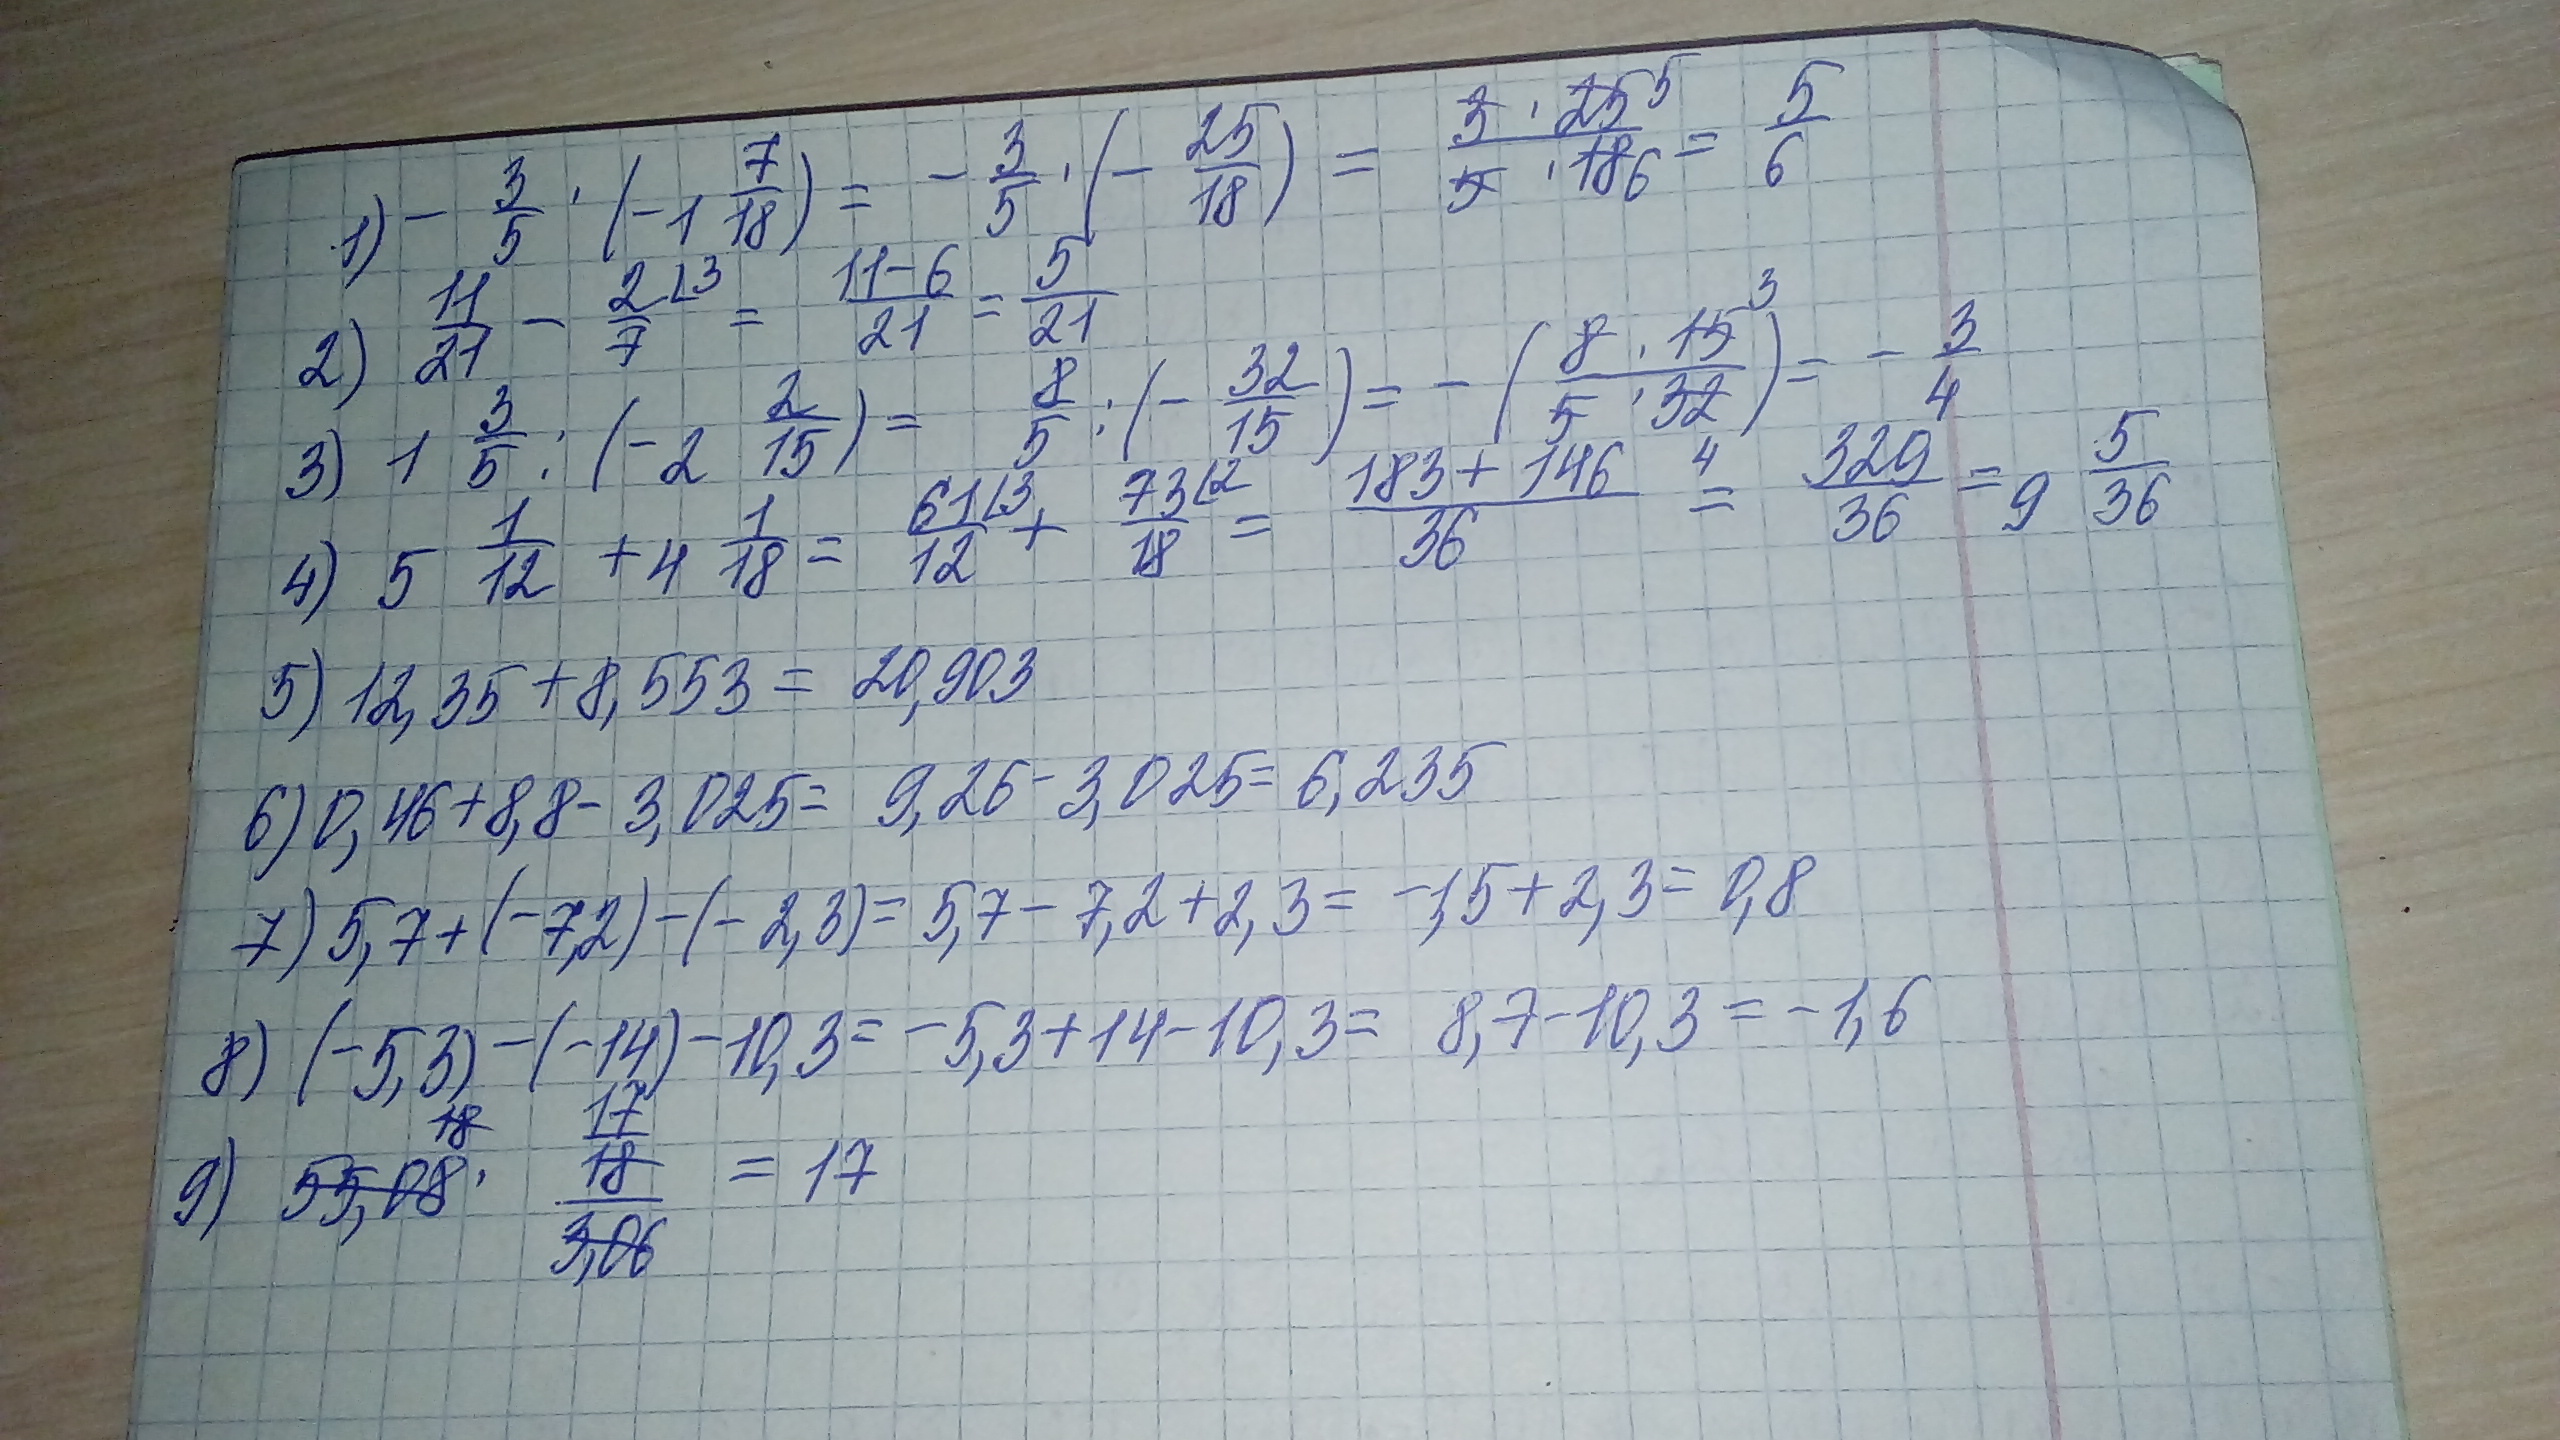 1) - 3/5 · (-1 7/18) = - 3/5 · (- 25/18) = 3 · 25 5 / 5 · 18 6 = 5/6
2) 11/21 - 2/7 ⌊3 = 11-6/21 = 5/21
3) 1 3/5 : (-2 2/15) = 8/5 : (- 32/15) = - (8 · 15 3 / 5 · 32 4) = - 3/4
4) 5 1/12 + 4 1/18 = 61⌊3/12 + 73⌊2/18 = 183 + 146/36 = 329/36 = 9 5/36
5) 12,35 + 8,553 = 20,903
6) 0,46 + 8,8 - 3,025 = 9,26 - 3,025 = 6,235
7) 5,7 + (-7,2) - (-2,3) = 5,7 - 7,2 + 2,3 = -1,5 + 2,3 = 0,8
8) (-5,3) - (-14) - 10,3 = -5,3 + 14 - 10,3 = 8,7 - 10,3 = -1,6
9) 55,08 18 · 17/18/3,06 = 17